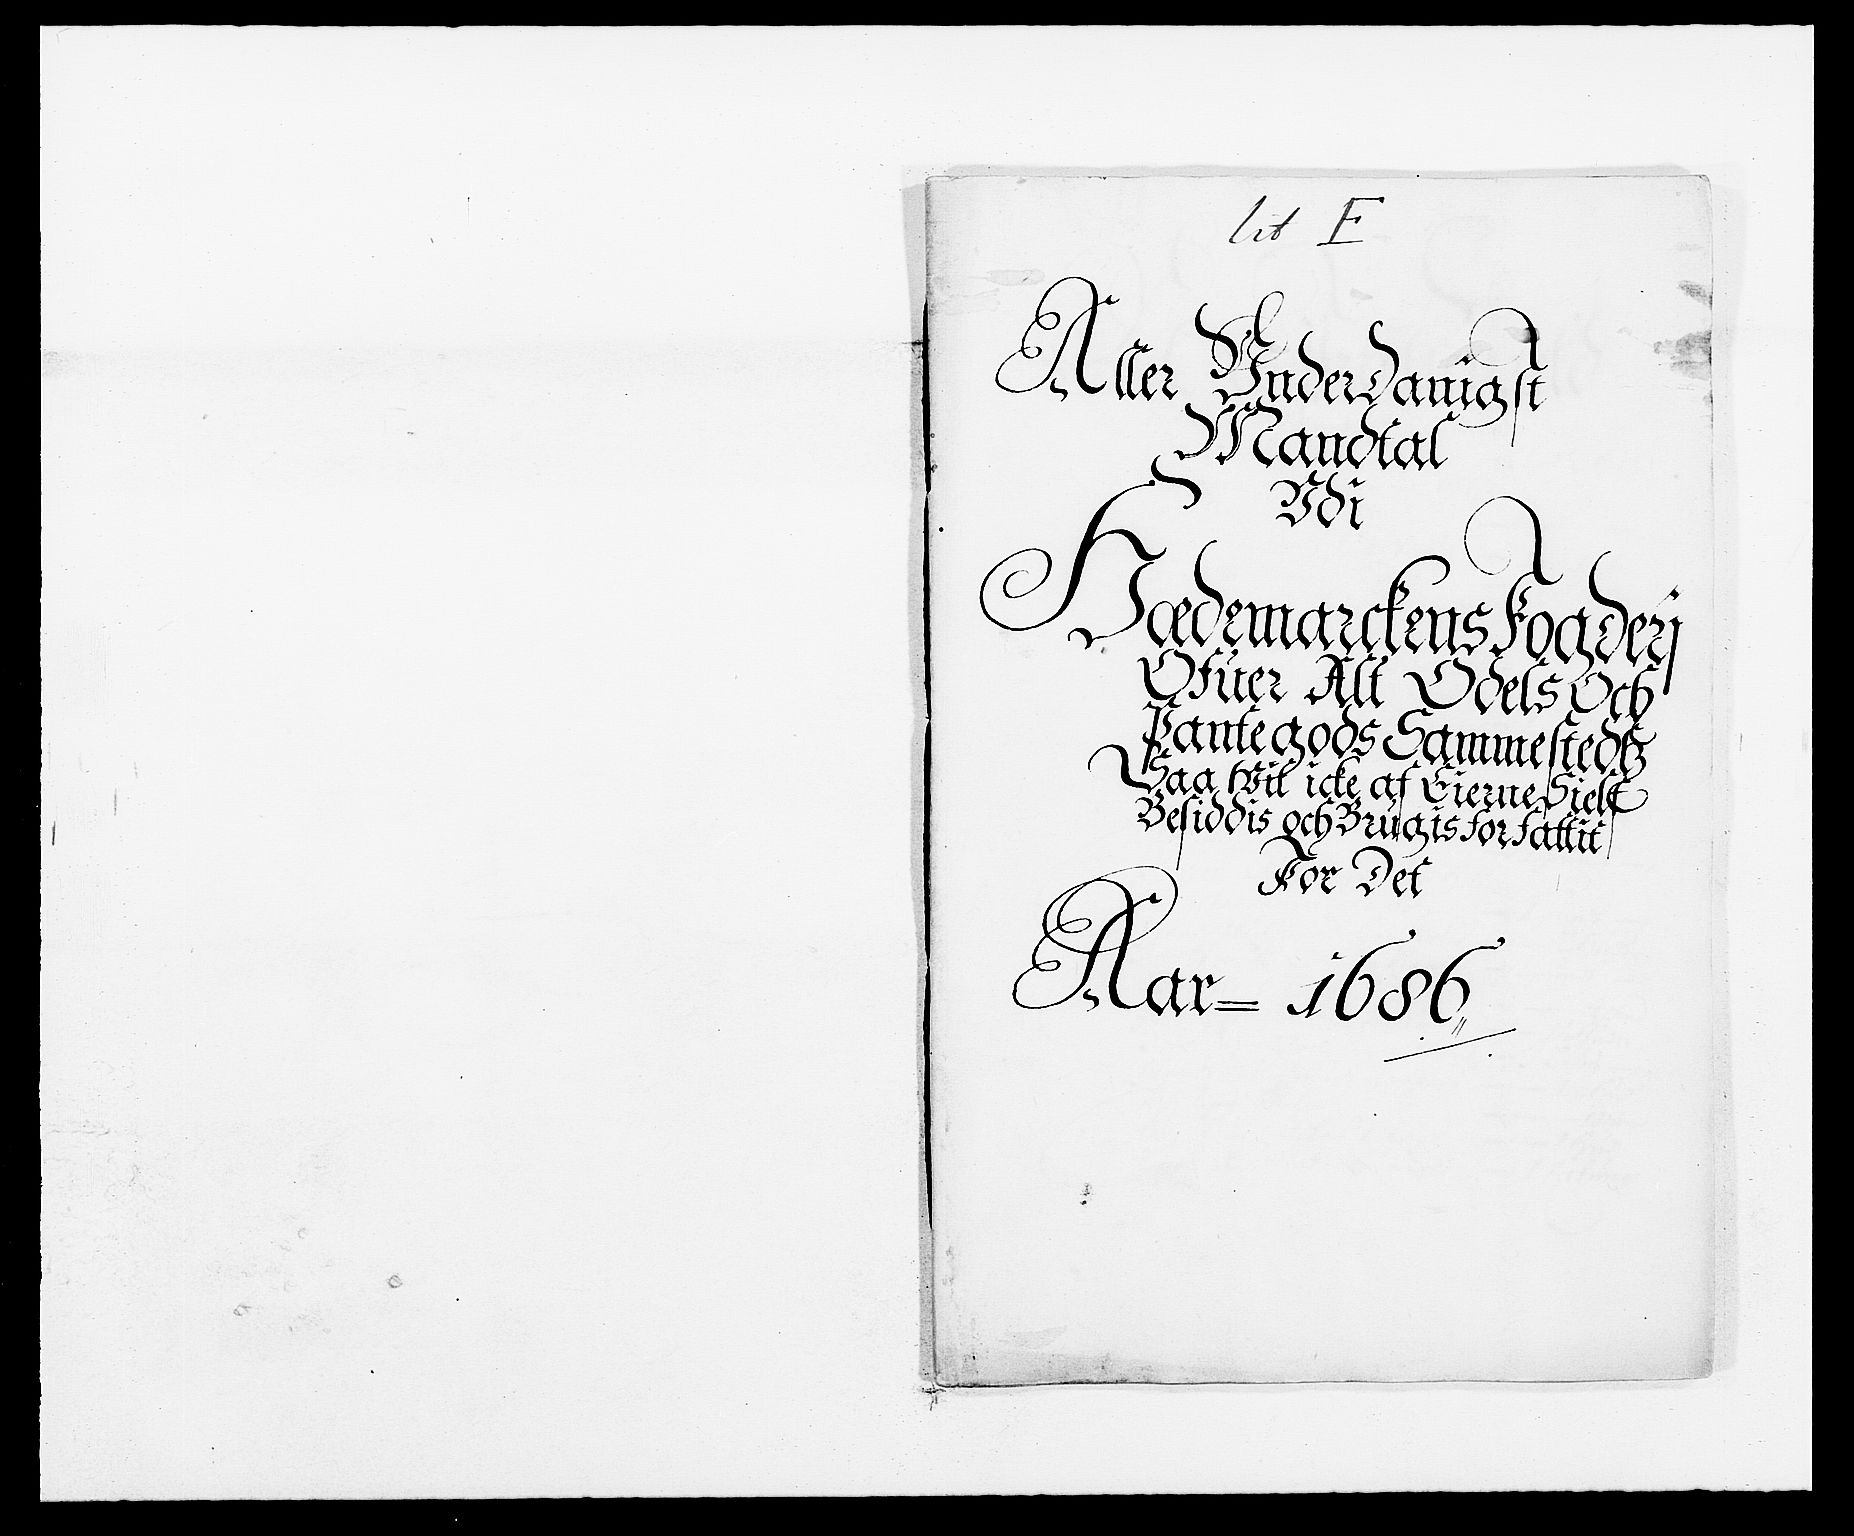 lit E
Aller Vnderdanigst
Mandtal
Vdi
Hædemarckens Fogderj
Ofuer Alt Odels Och
Pantegods Sammestedtz
Saa Vit icke af Eierne Sielf
Besiddis och Brugis forfattit
For Det
Aar= 1686